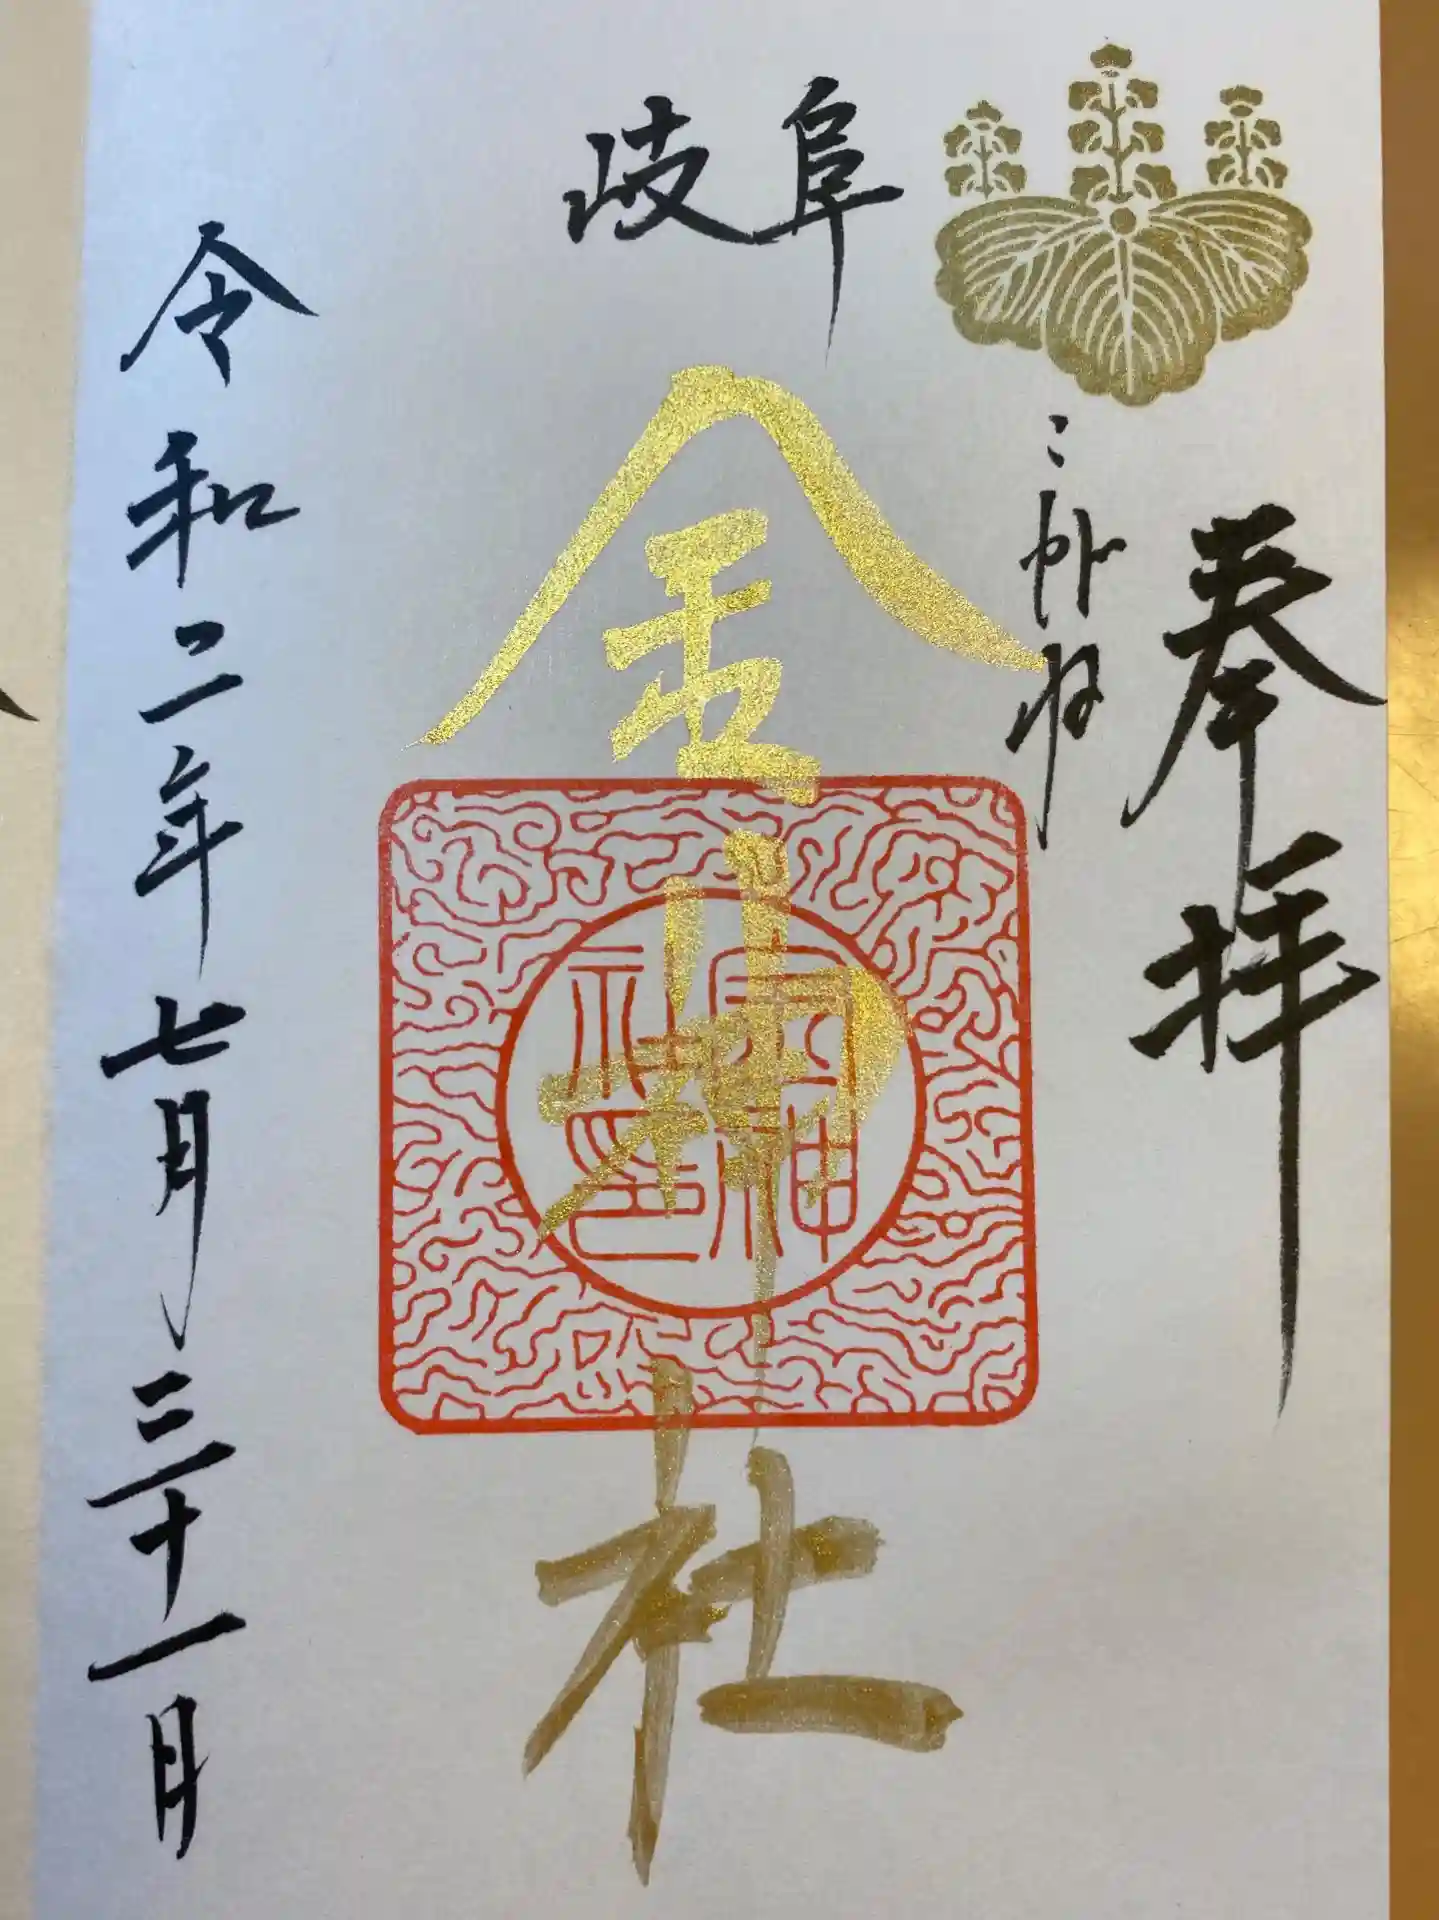 奉拝
こがね
岐阜
金神社
金神
社印
令和二年七月三十一日